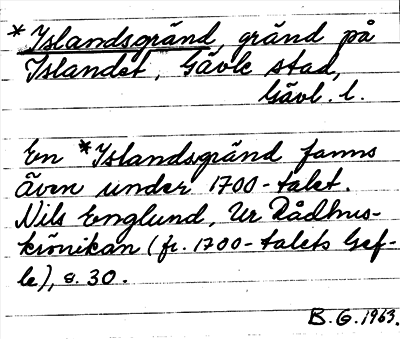 *Islandsgränd, gränd på
Islandet, Gävle stad,
Gävl. l.
En *Islandsgränd fanns
även under 1700-talet.
Nils Englund, Ur Rådhus-
krönikan (fr. 1700-talets Gef-
le), s. 30.
B. G. 1963.